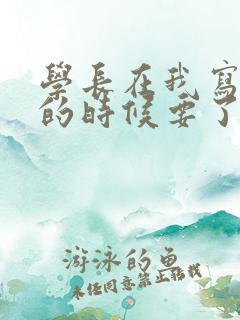 學長在我寫
的時候要了
游泳的魚
未经同意禁止转载